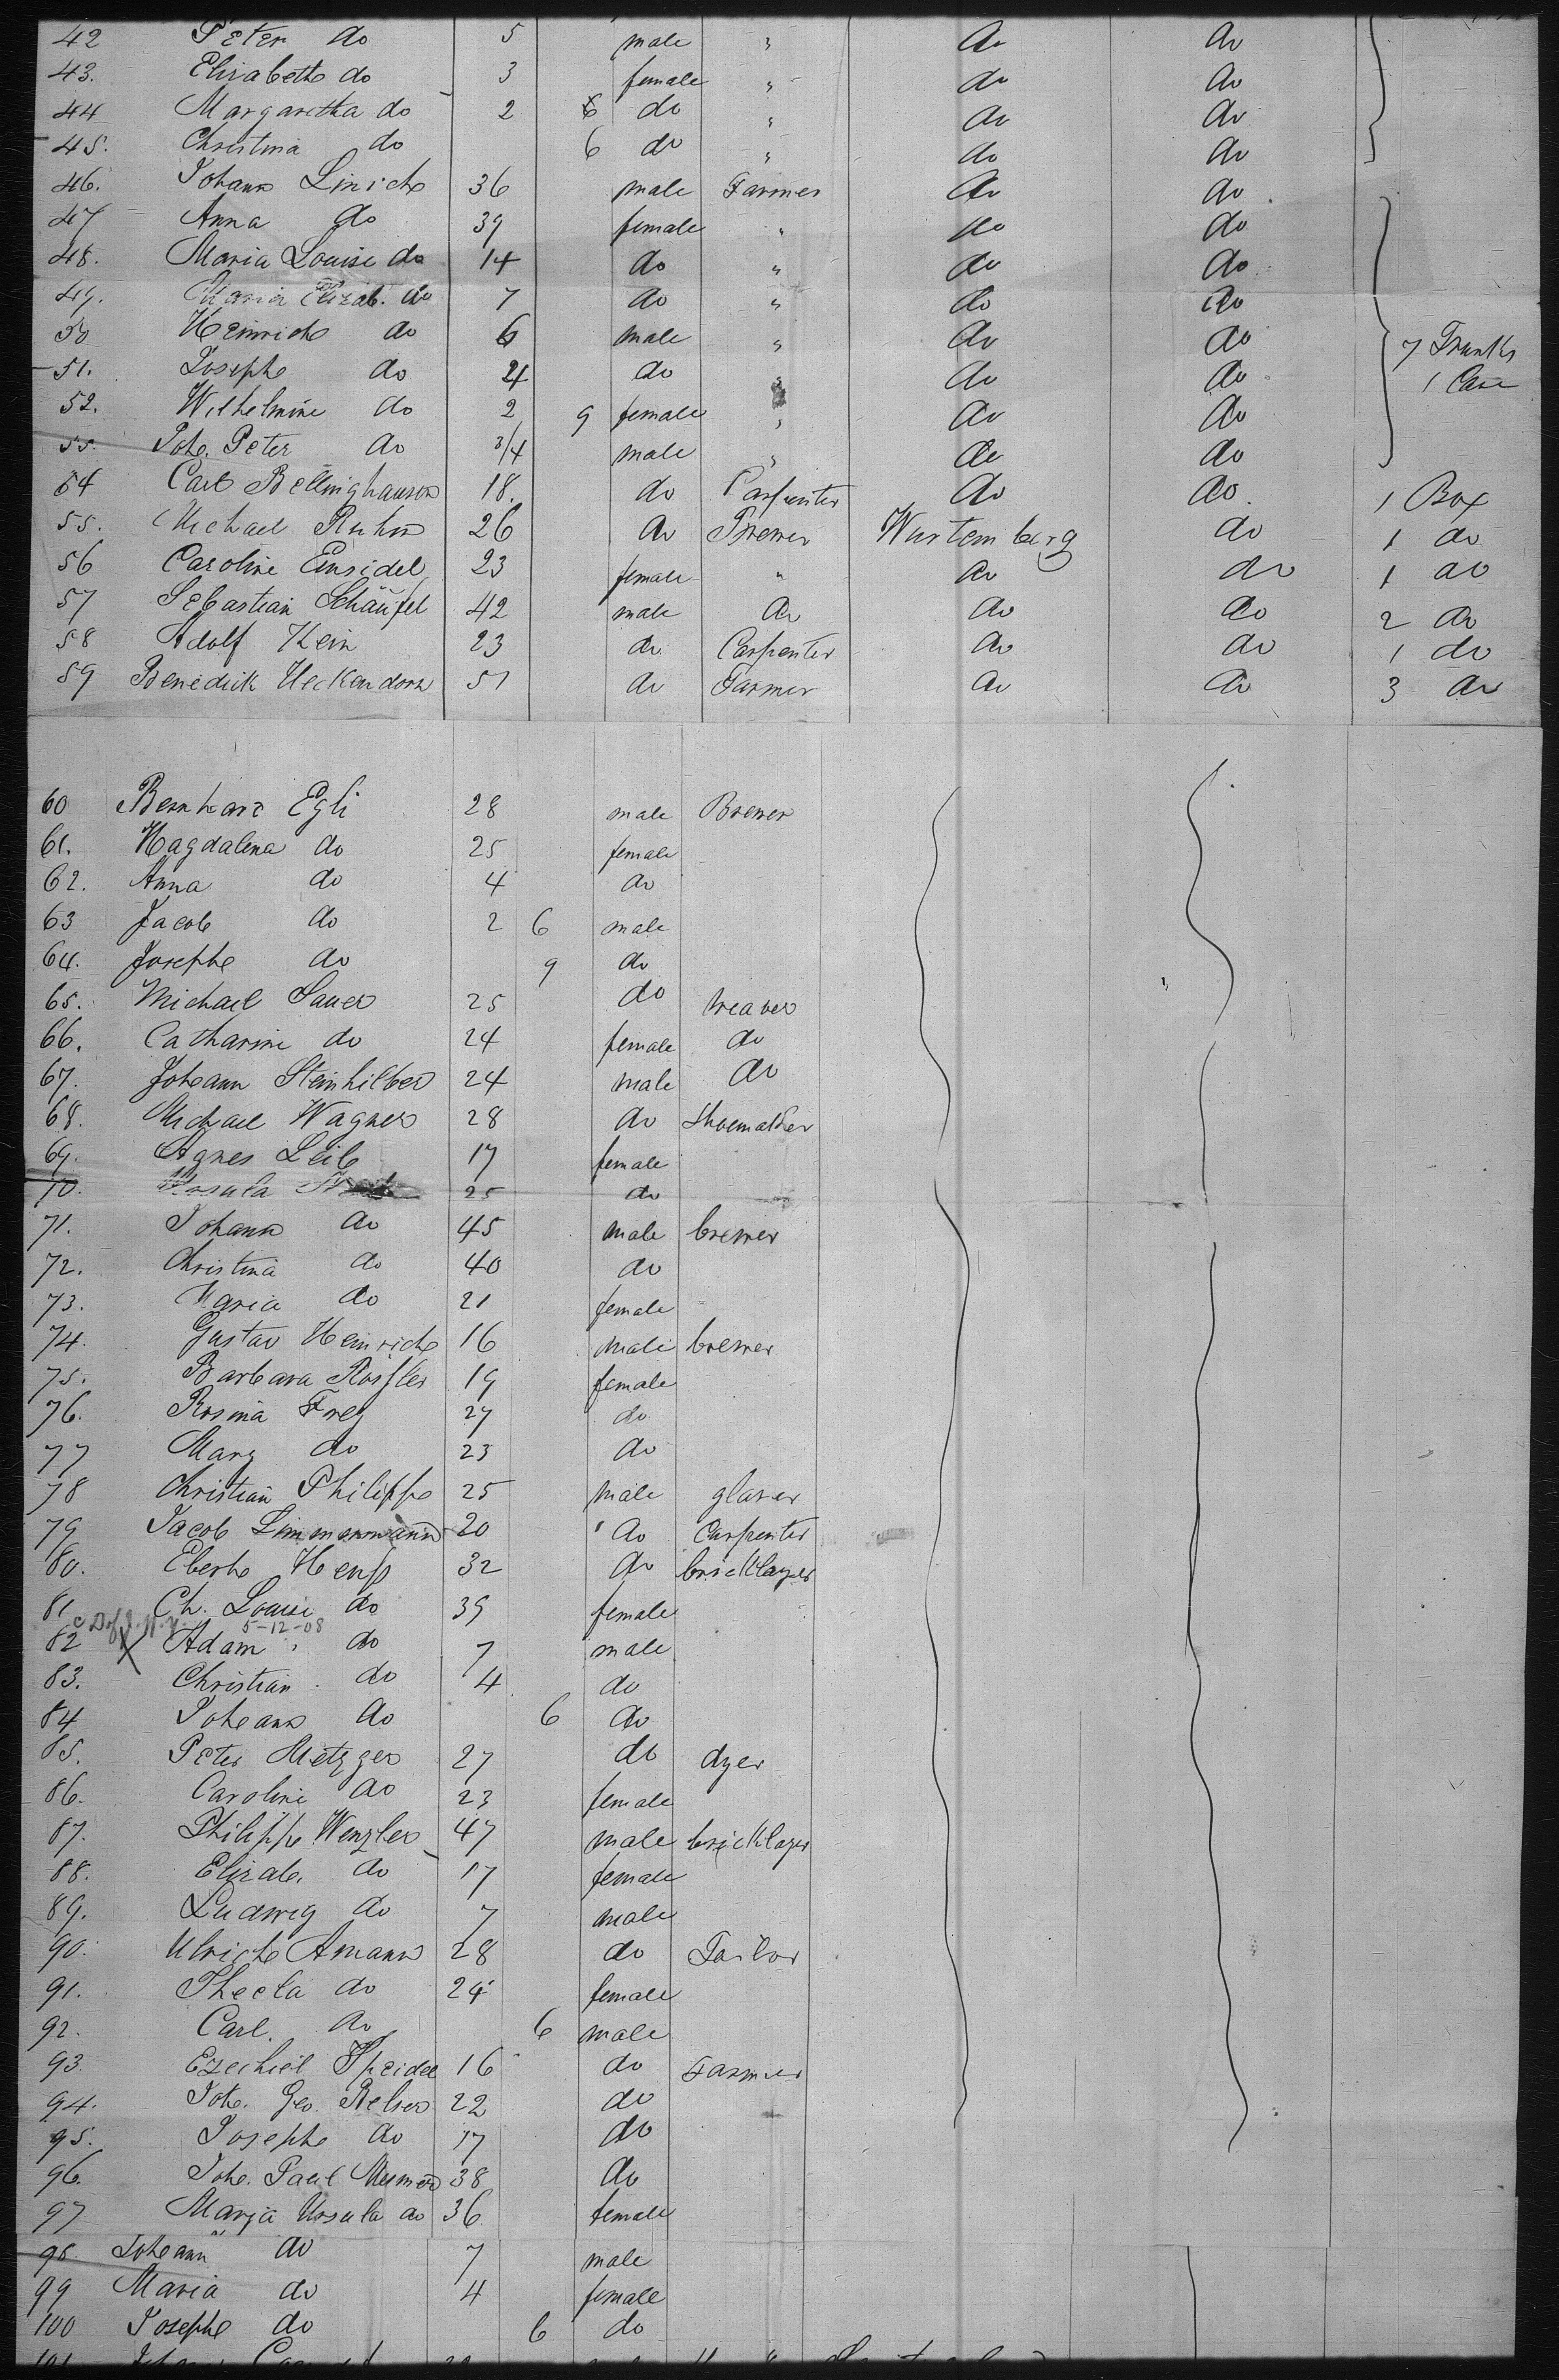 42 Peter do 5 male " do do
43. Elisabeth do 3 female " do do
44 Margaretha do 2 6 do " do do
45. Christina do 6 do " do do
46. Johann Linich 36 male Farmer do do
47 Anna do 39 female " do do
48. Maria Louise do 14 do " do do
49. Maria Elizab. do 7 do " do do
50 Heinrich do 6 male " do do 7 Trunks
51. Joseph do 4 do " do do 1 Case
52. Wilhelmine do 2 9 female " do do
53. Joh. Peter do 3/4 male " do do
54 Carl Bellinghausen 18. do Carpenter do do 1 Box
55. Michael Ruhn 26 do Brewer Wurtemberg do 1 do
56 Caroline Einsidel 23 female " do do 1 do
57 Sebastian Schäufel 42 male do do do 2 do
58 Adolf Kein 23 do Carpenter do do 1 do
59 Benedick Heckendorn 51 do Farmer do do 3 do
60 Bernhard Egli 28 male Brewer
61. Magdalena do 25 female
62. Anna do 4 do
63 Jacob do 2 6 male
64. Joseph do 9 do
65. Michael Sauer 25 do weaver
66. Catharine do 24 female do
67. Johann Steinhilber 24 male do
68. Michael Wagner 28 do Shoemaker
69. Agnes Leib 17 female
70. Rosula 25 do
71. Johann do 45 male brewer
72. Christina do 40 do
73. Maria do 21 female
74. Gustav Heinrich 16 male brewer
75. Barbara 19 female
76. Rosina Frey 27 do
77 Mary do 23 do
78 Christian Philipp 25 male glaser
79 Jacob Zimmermann 20 do Carpenter
80. Eberh Heuss 32 do bricklayer
81 Ch. Louise do 39 female
5-12-08
82 X Adam do 7 male
83. Christian do 4 do
84 Johann do 6 do
85. Peter Metzger 27 do dyer
86. Caroline do 23 female
87. Philipp Wenzler 47 male bricklayer
88. Elizab. do 17 female
89. Ludwig do 7 male
90. Ulrich Amann 28 do Tailor
91. Thecla do 24 female
92. Carl. do 6 male
93. Ezechiel Speidel 16 do Farmer
94. Joh. Geo. Belser 22 do
95. Joseph do 17 do
96. Joh. Paul 38 do
97 Maria Ursula do 36 female
98. Johann do 7 male
99 Maria do 4 female
100 Joseph do 6 do
101